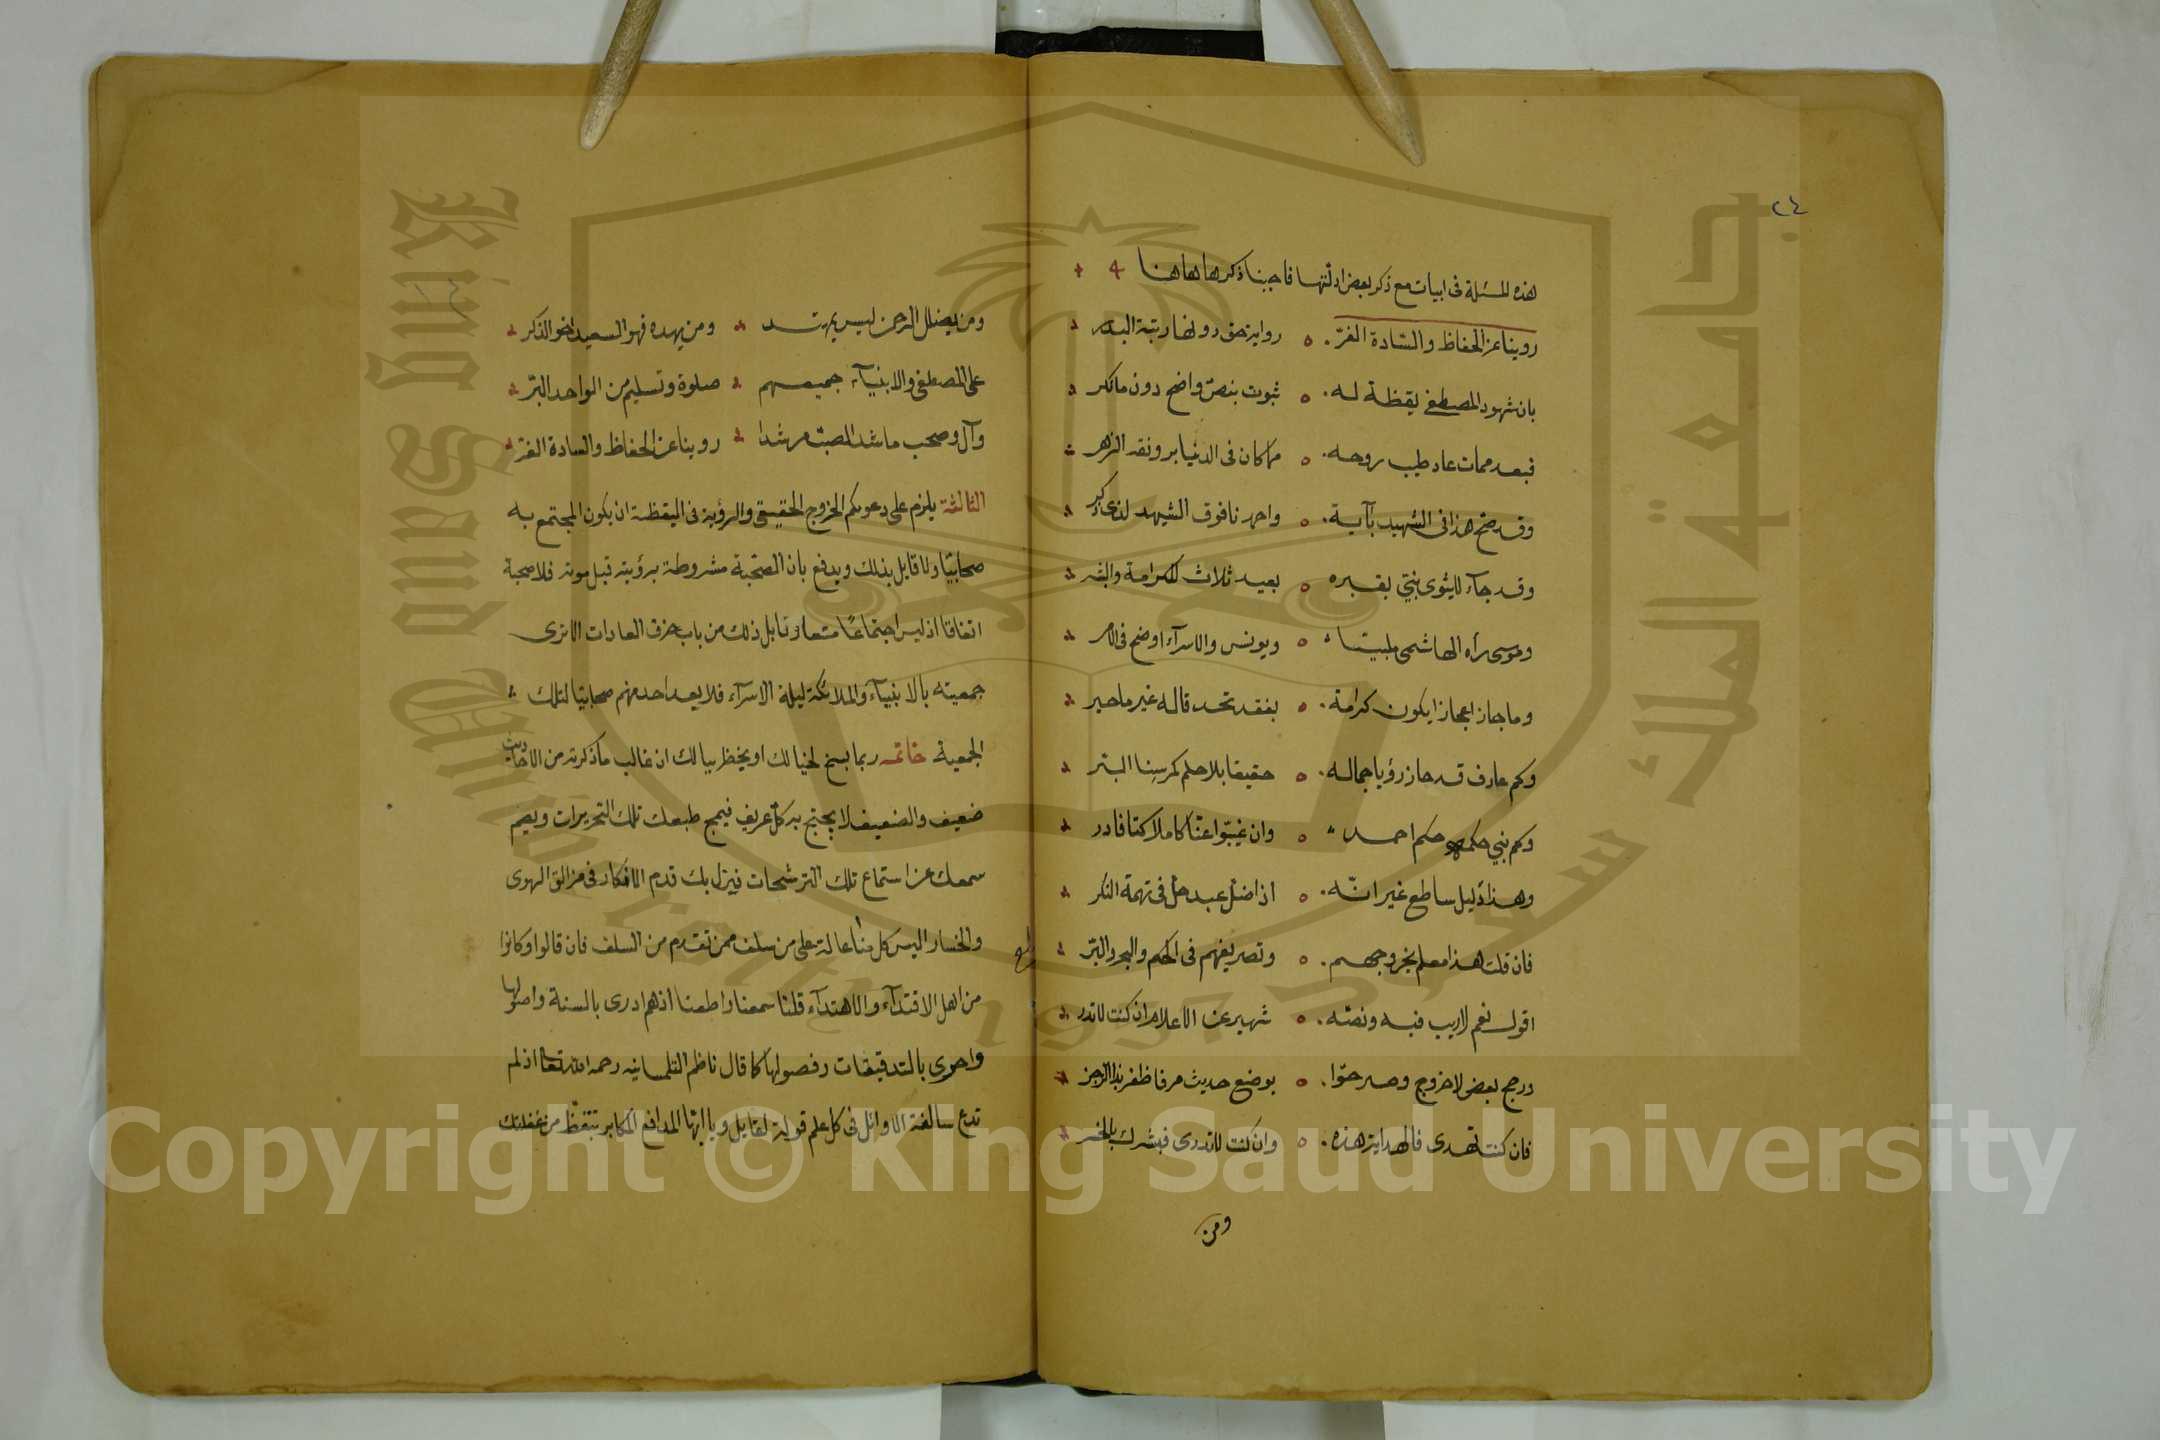 ٢٤
هذه المسئلة فى ابيات مع ذكر بعض ادلتها فاجبنا ذكرها هاهنا
روينا عن الحفاظ والسادة الغرّ رواية حق دونها رتبة البدر
بان شهود المصطفى يقظة له ثبوت بنصّ واضح دون ما نكر
فبعد ممات عاد طيب روحه كما كان فى الدنيا برونقه الزهر
وقد صح هذا فى الشهيد بآية واحمدنا فوق الشهيد لذى
وقد جآء لايثوى بنبيّ بقبره بعيد ثلاث للكرامة والبشر
وموسى رأه الهاشمى ملبيتا ويونس والاسرآء اوضح فى الامر
وما جاز اعجازا يكون كرامة بفقد تحد قاله غير ما حبر
وكم عارف قد حاز رؤيا جماله حقيقا بلا حلم كمرسنا البتر
وكم نبي حكمه حكم احمد وان غيبوا عنّا كاملاك فادر
وهذا دليل ساطع غير انّه اذا ضل عبد حل فى تهمة النكر
فان قلت هذا معلم بخروجهم وتصريفهم فى الحكم والبحر والبرّ
اقول نعم لاريب فيه ونصّه شهير عن الاعلام ان كنت لا تدر
ورجح بعض لا خروج وصرحوا بوضع حديث مر فاظفر بذا الرجز
فان كنت تهدى فالهداية هذه وان كنت لا تدرى فبشرك بالخسر
ومن
ومن يضلل الرحمن ليس بمرشد ومن يهده فهو السعيد اخو الذكر
على المصطفى والانبيآء جميعهم صلوة وتسليم من الواحد البرّ
وآل وصحب ما شد الصبّ مرشدا روينا عن الحفاظ والسادة الغرّ
الثالثة يلزم على دعوىكم الخروج الحقيقى والرؤية فى اليقظة ان يكون المجتمع به
صحابيّا ولا قايل بذلك ويدفع بان الصحبة مشروطة برؤيته قبل موته فلا صحبة
اتفاقا اذ ليس اجتماعًا متعارفا بل ذلك من باب خرق العادات الا ترى
جمعيته بالانبيآء والملائكة ليلة الاسرآء فلا يعد احد منهم صحابيا لتلك
الجمعية خاتمه ربما يسنح لخيالك او يخطر ببالك ان غالب ما ذكرته من الاحاديث
ضعيف والضعيف لا يحتج به كل عريف فيمج طبعك تلك التحريرات ويصم
سمعك عن استماع تلك الترشحات فيزل بك قدم الافكار فى مزالق الهوى
والخسار اليس كل منا عالة على من سلف ممن تقدم من السلف فان قالوا وكانوا
من اهل الاقتدآء والاهتدآء قلنا سمعنا واطعنا اذ هم ادرى بالسنة واصولها
واحرى بالتدقيقات وفصولها كما قال ناظم التلمسانيه رحمه الله تعالى اذ لم
تدع سالفة الاوائل فى كل علم قولة لقايل ويا ايها المدافع المكابر تيقظ من غفلتك
Copyright © King Saud University
جامعة الملك سعود
King Saud University
1957